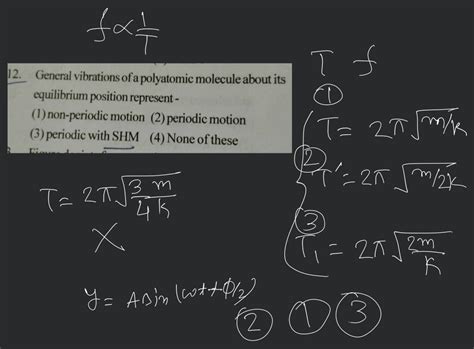 f ∝ 1/T
12. General vibrations of a polyatomic molecule about its
equilibrium position represent -
(1) non-periodic motion (2) periodic motion
(3) periodic with SHM (4) None of these
T f
① T = 2π√m/k
② T' = 2π√m/2k
③ T₁ = 2π√2m/k
T = 2π√3m/4k
X
y = A sin (ωt + ϕ/2)
② ① ③